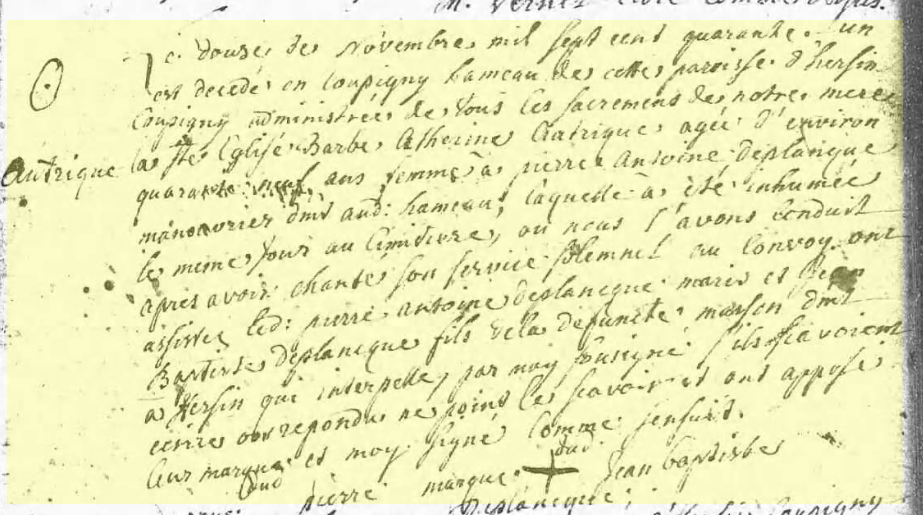 M. Vernez
Le douze de novembre mil sept cent quarante un
est decedé en Coupigny hameau de cette paroisse d'hersin
Coupigny administrée de tous les sacremens de notre mere
Autrique
la ste Eglise Barbe Catherine Autrique agée d'environ
quarante neuf ans femme à pierre Antoine deplanque
manouvrier dmt aud: hameau, laquelle à été inhumée
le meme jour au Cimitierre, où nous l'avons conduit
apres avoir chanté son service solemnel au Convoy ont
assistez led: pierre antoine deplancque maris et Jean
Baptiste deplancque fils de la defuncte masson dmt
à Hersin qui interpellé, par moy soussigné s'ils scavoient
ecrire ont repondu ne point le scavoir et ont apposé
leur marque et moy signé comme sensuit.
dud pierre marque + dud Jean baptiste
Deplancque
Coupigny